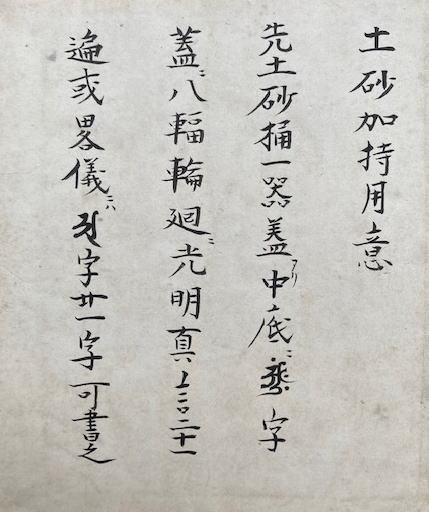 土砂加持用意
先土砂桶一器蓋アリ中底ニ字
蓋ニ八輻輪廻ニ光明真言二十一
遍或畧儀ニハ字廿一字可書之